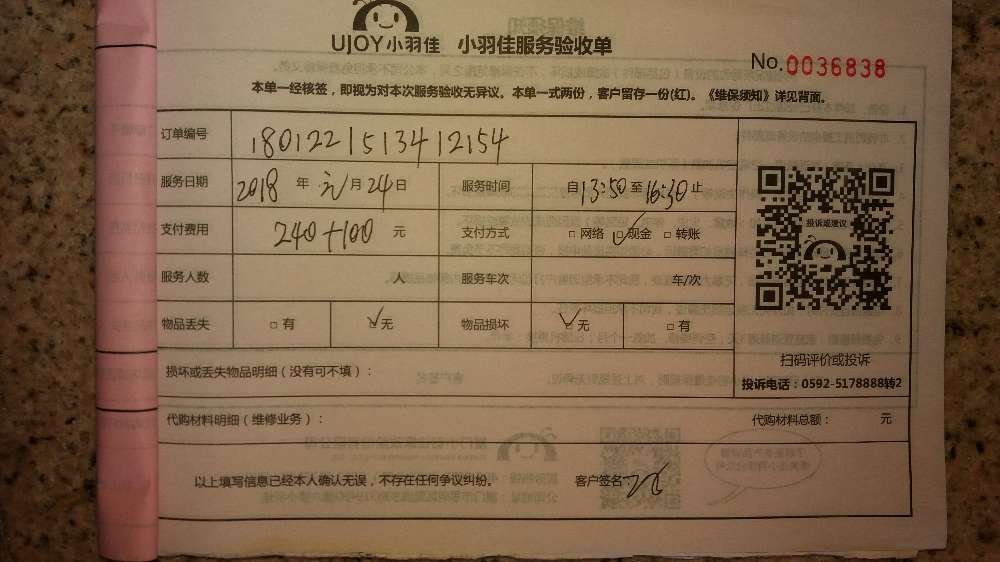 UJOY小羽佳 小羽佳服务验收单
No.0036838
本单一经核签，即视为对本次服务验收无异议。本单一式两份，客户留存一份(红)。《维保须知》详见背面。
订单编号 1801221513412154
服务日期 2018 年 元 月 24 日 服务时间 自 13:50 至 16:30 止
支付费用 240+100 元 支付方式 □ 网络 ☑ 现金 □ 转账
服务人数 人 服务车次 车/次
物品丢失 □ 有 ☑ 无 物品损坏 ☑ 无 □ 有
投诉或建议
扫码评价或投诉
投诉电话：0592-5178888转2
损坏或丢失物品明细（没有可不填）：
代购材料明细（维修业务）： 代购材料总额： 元
以上填写信息已经本人确认无误，不存在任何争议纠纷。 客户签名: